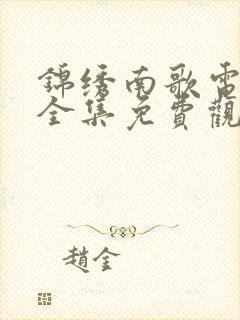 錦綉南歌電
全集免費觀
趙金